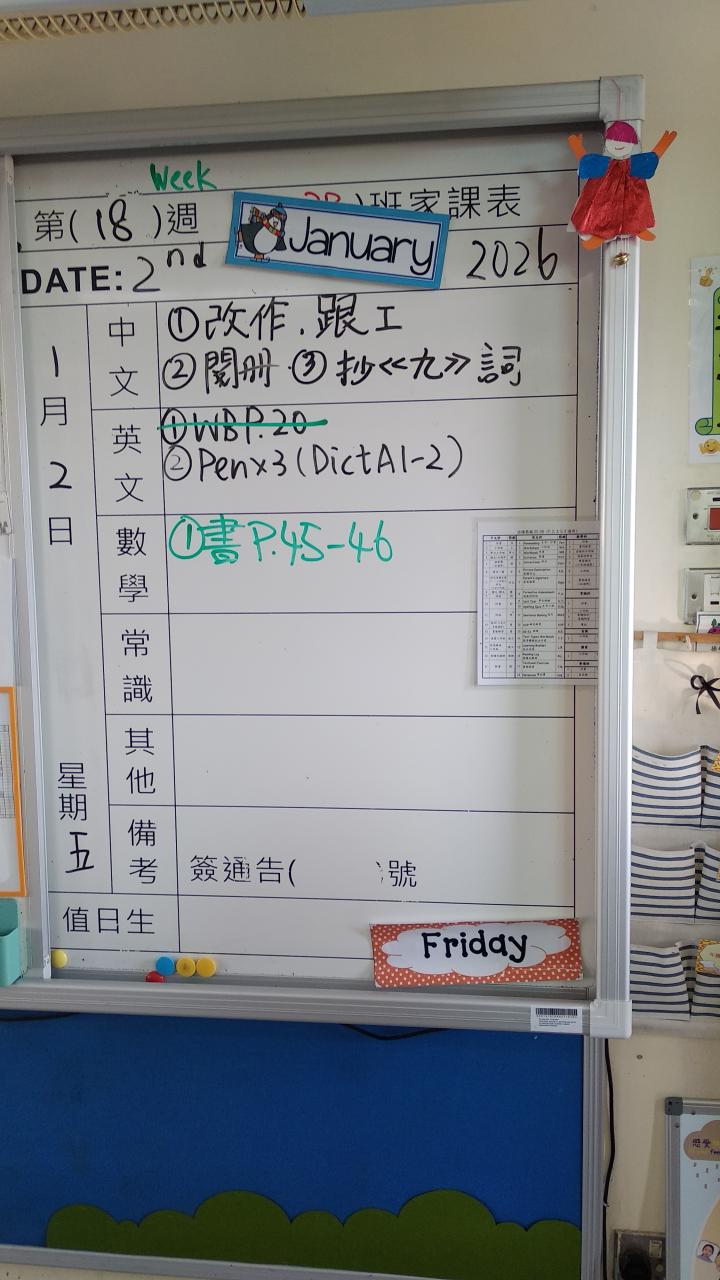 Week
第(18)週
)班家課表
January
DATE: 2nd
2026
1月2日
星期五
中文
①改作.跟工
②閱冊 ③抄≪九≫詞
英文
①WB P.20
②Pen x3 (Dict A1-2)
數學
①書 P.45-46
常識
其他
備考
簽通告( )號
值日生
Friday